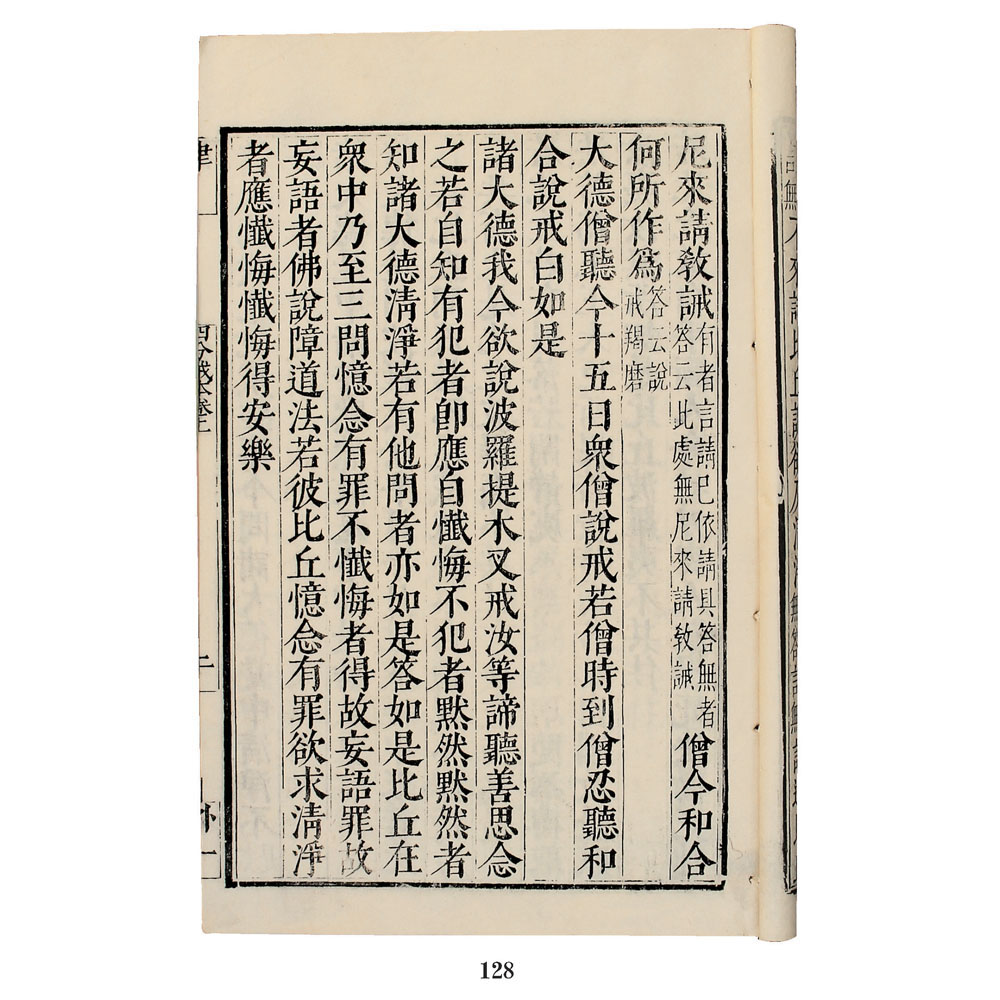 尼來請敎誡有者言請已依請具答無者僧今和合
答云此處無尼來請敎誡
何所作爲答云說
戒羯磨
大德僧聽今十五日衆僧說戒若僧時到僧忍聽和
合說戒白如是
諸大德我今欲說波羅提木叉戒汝等諦聽善思念
之若自知有犯者卽應自懺悔不犯者默然默然者
知諸大德淸淨若有他問者亦如是答如是比丘在
衆中乃至三問憶念有罪不懺悔者得故妄語罪故
妄語者佛說障道法若彼比丘憶念有罪欲求淸淨
者應懺悔懺悔得安樂
128